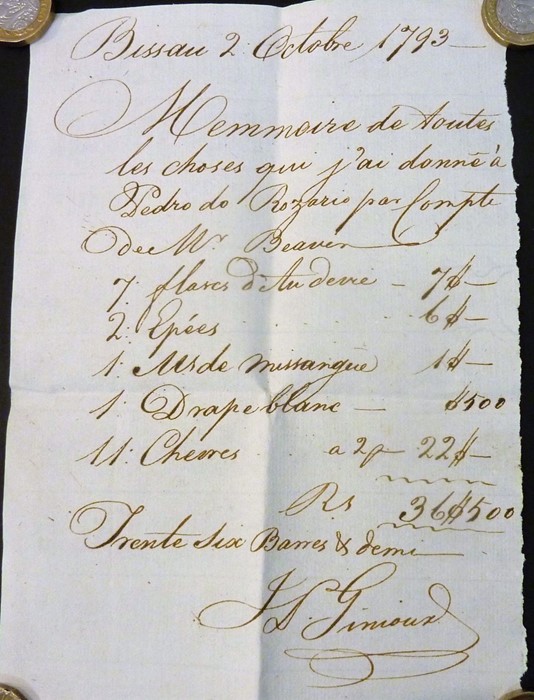 Bissau 2 Octobre 1793 —
Memmoire de toutes
les choses qui j'ai donné à
Pedro do Rozario par Compte
de Mr Beaver
7: flascs d'Au devie — 7$—
2: Epées 6$—
1: Ms de missangue 1$—
1: Drape blanc — $500
11: Chevres a 2p 22$—
Rs 36$500
Trente Six Barres & demi